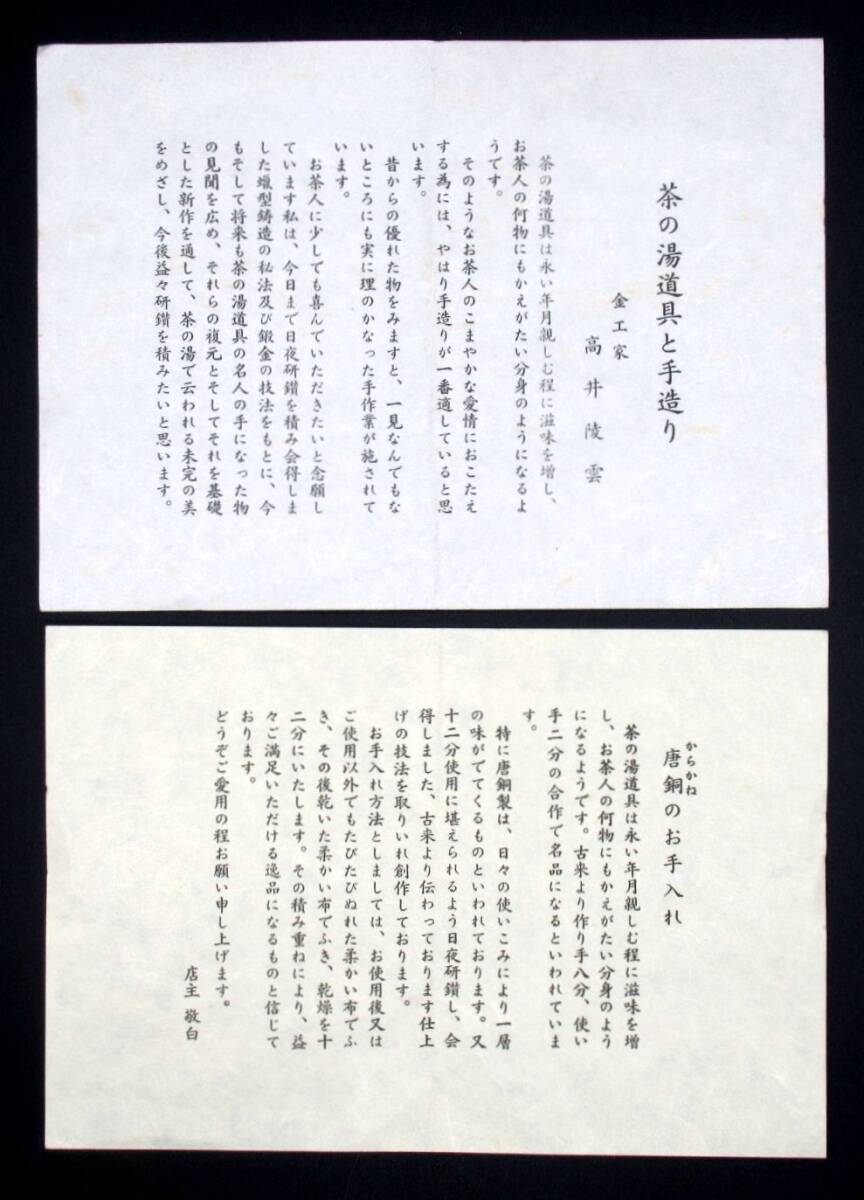 茶の湯道具と手造り
金工家
高井陵雲
茶の湯道具は永い年月親しむ程に滋味を増し、
お茶人の何物にもかえがたい分身のようになるよ
うです。
そのようなお茶人のこまやかな愛情におこたえ
する為には、やはり手造りが一番適していると思
います。
昔からの優れた物をみますと、一見なんでもな
いところにも実に理のかなった手作業が施されて
います。
お茶人に少しでも喜んでいただきたいと念願し
ています私は、今日まで日夜研鑽を積み会得しま
した蠟型鋳造の秘法及び鍛金の技法をもとに、今
もそして将来も茶の湯道具の名人の手になった物
の見聞を広め、それらの復元とそしてそれを基礎
とした新作を通して、茶の湯で云われる未完の美
をめざし、今後益々研鑽を積みたいと思います。
からかね
唐銅のお手入れ
茶の湯道具は永い年月親しむ程に滋味を増
し、お茶人の何物にもかえがたい分身のよう
になるようです。古来より作り手八分、使い
手二分の合作で名品になるといわれていま
す。
特に唐銅製は、日々の使いこみにより一層
の味がでてくるものといわれております。又
十二分使用に堪えられるよう日夜研鑽し、会
得しました、古来より伝わっております仕上
げの技法を取りいれ創作しております。
お手入れ方法としましては、お使用後又は
ご使用以外でもたびたびぬれた柔かい布でふ
き、その後乾いた柔かい布でふき、乾燥を十
二分にいたします。その積み重ねにより、益
々ご満足いただける逸品になるものと信じて
おります。
どうぞご愛用の程お願い申し上げます。
店主 敬白